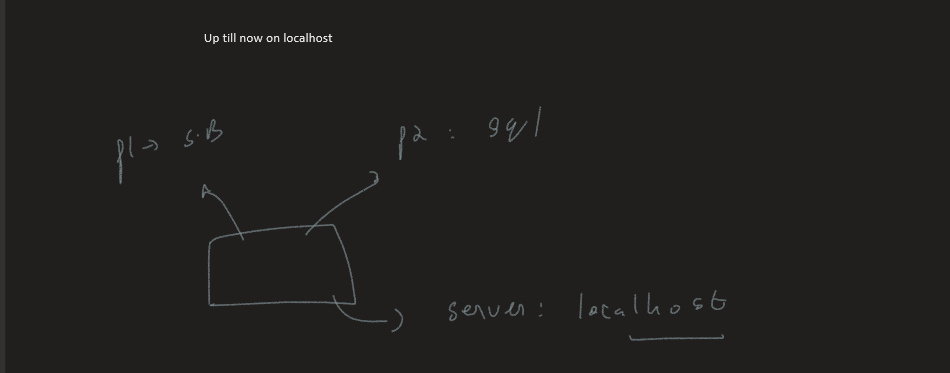 Up till now on localhost
p1 → S.B
p2 : sql
server : localhost